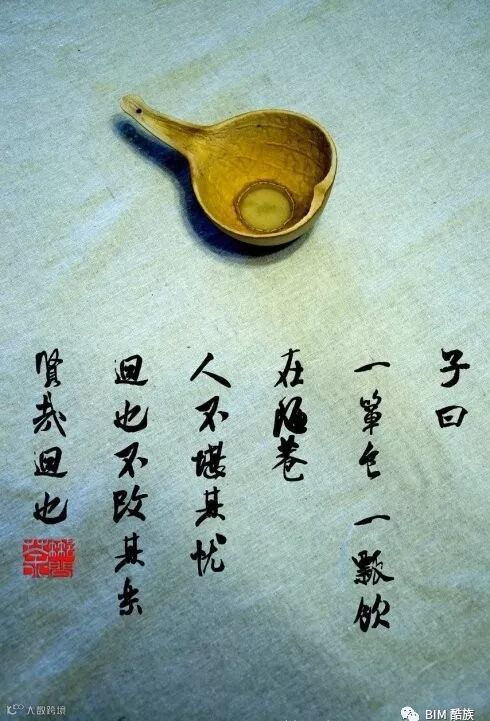 子曰
一箪食一瓢饮
在陋巷
人不堪其忧
迴也不改其乐
贤哉迴也
大数跨境
BIM 酷族